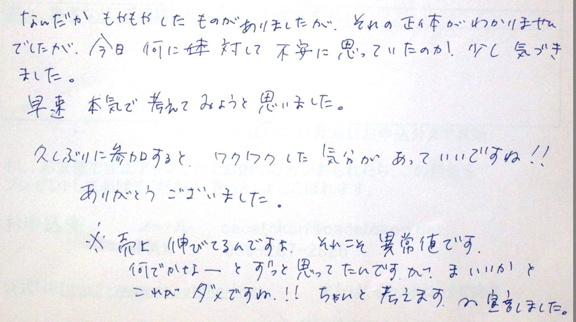 なんだか もやもやしたものがありましたが、それの正体がわかりません
でしたが、今日 何に 対して 不安に思っていたのか、少し 気づき
ました。
早速 本気で考えてみようと思いました。
久しぶりに参加すると、ワクワクした 気分が あっていいですね!!
ありがとうございました。
※ 売上 伸びてるんですよ、それこそ 異常値です。
何でかなーと ずっと思ってたんですが、まいいかと
これが ダメですね!! ちゃんと 考えます 宣言しました。